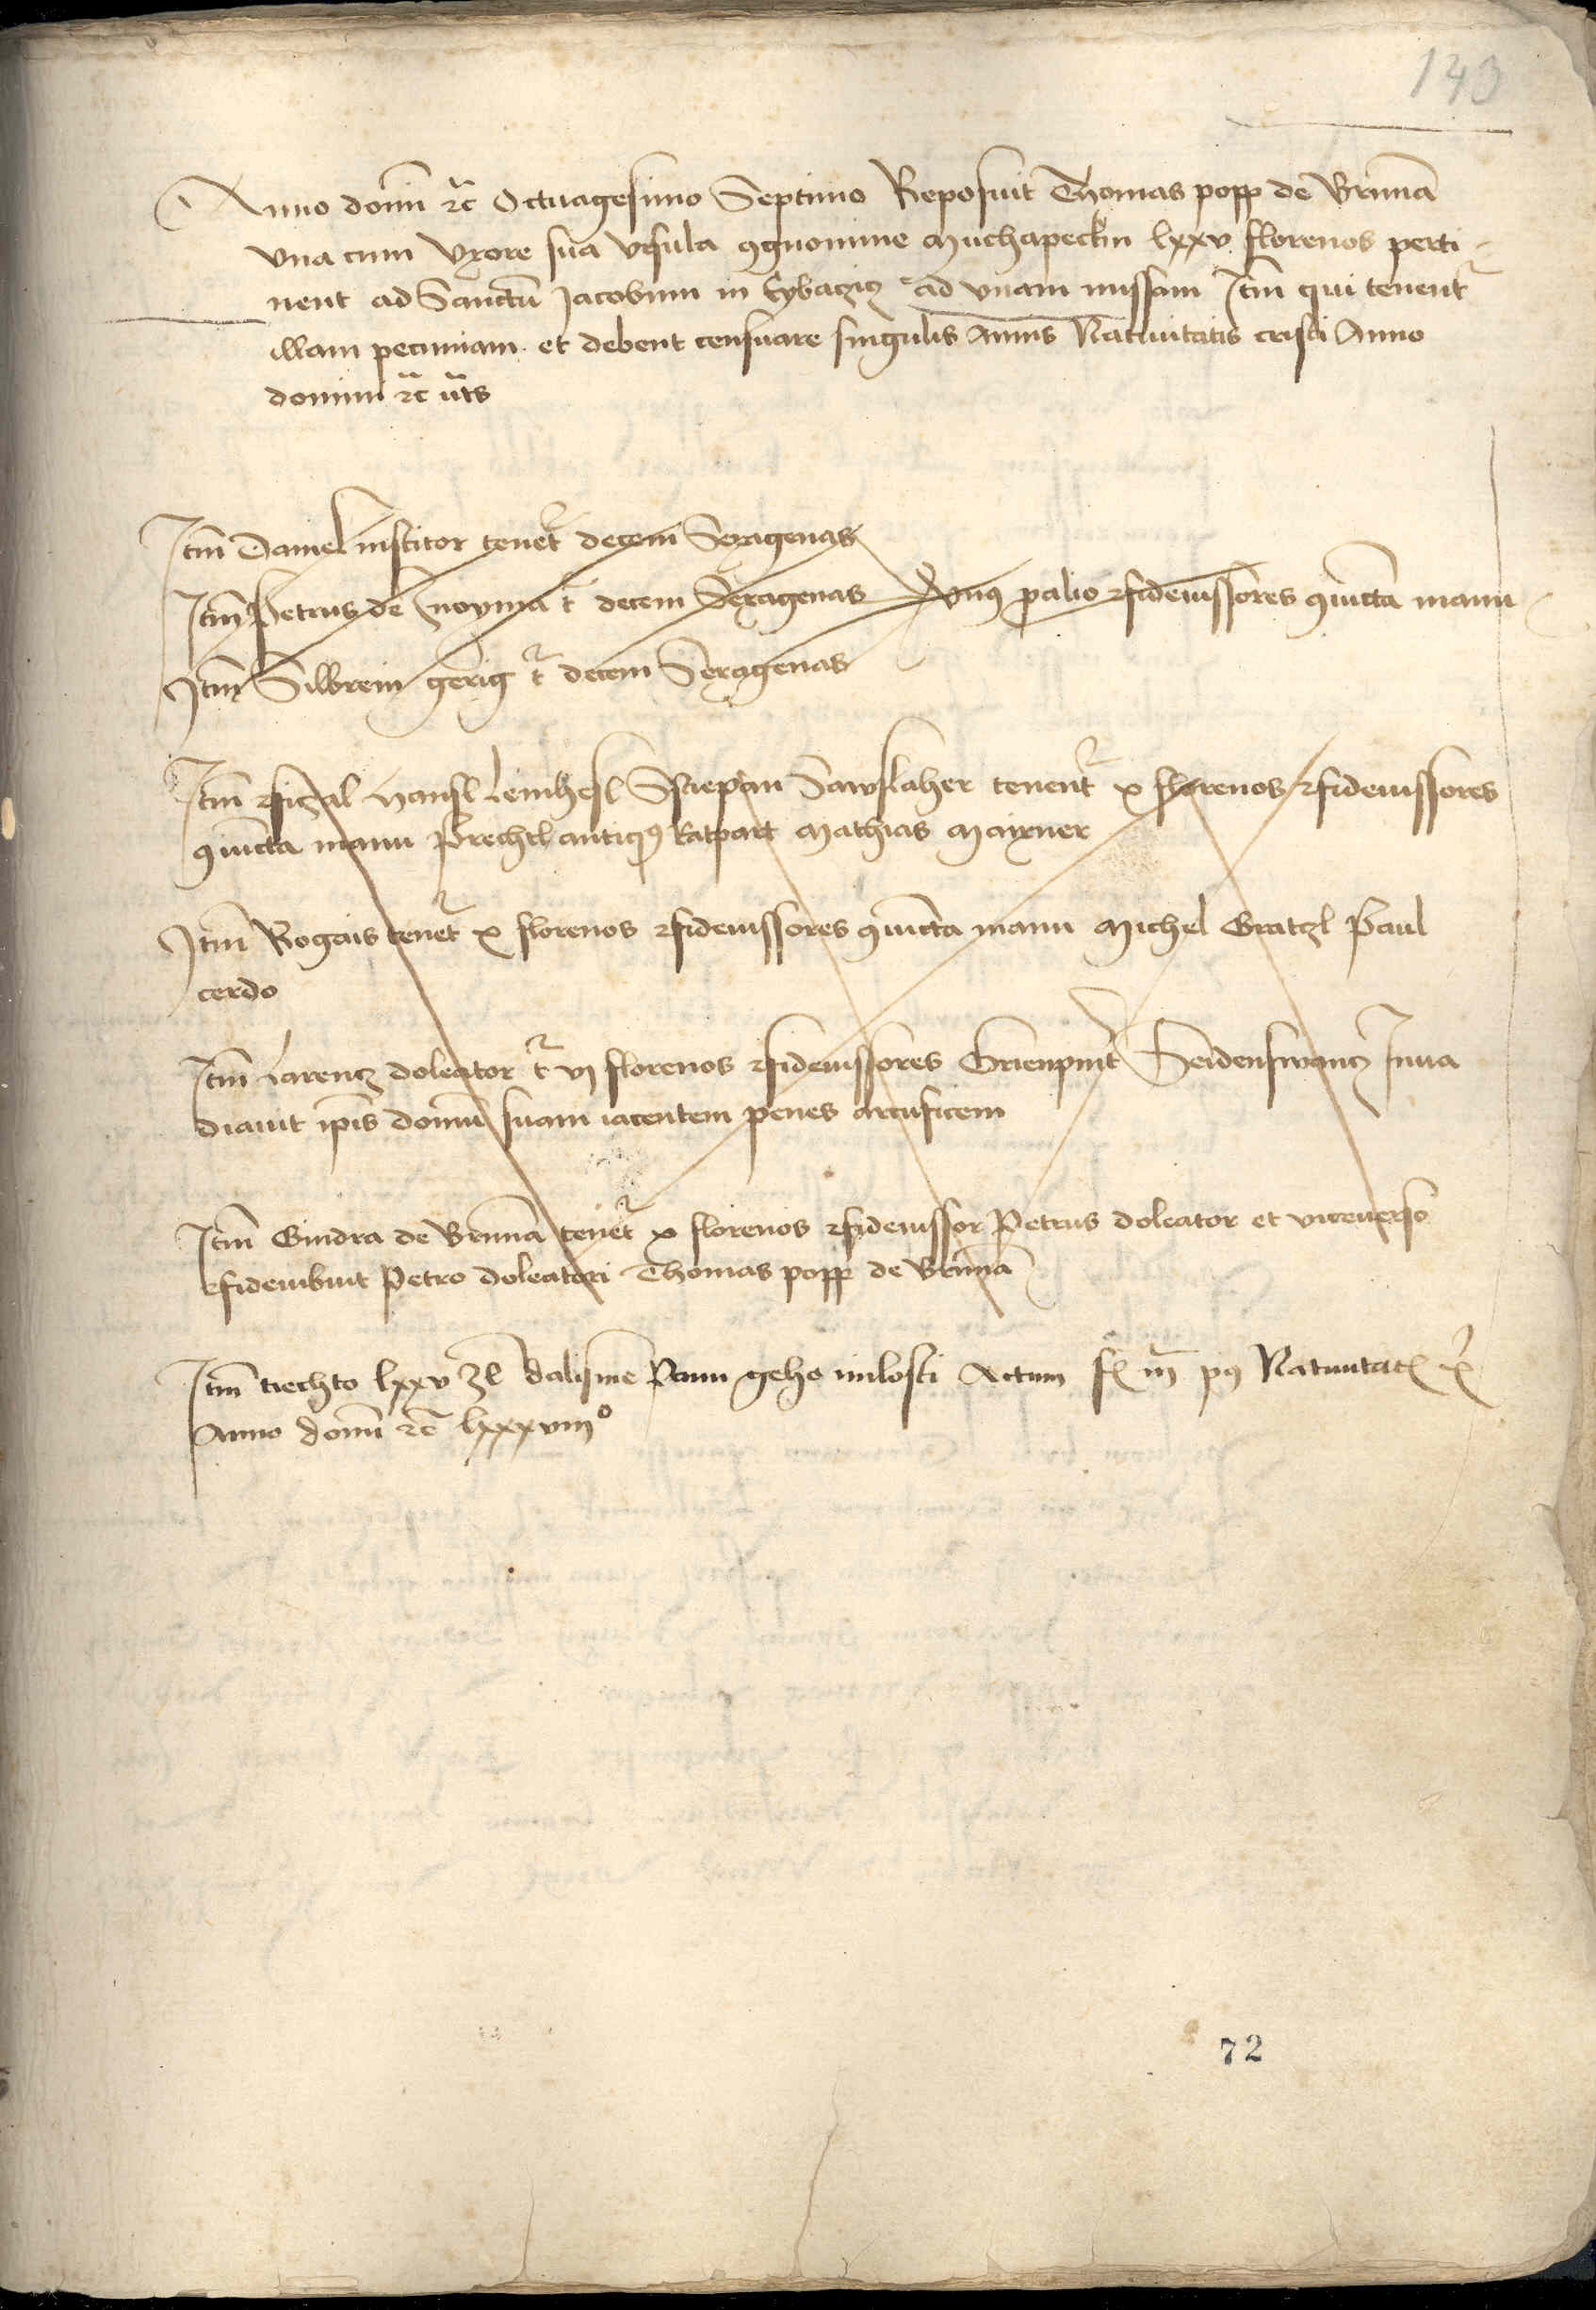 143
Anno domi(ni) etc Octuagesimo Septimo Reposuit Thomas popp de Brunna
vna cum Vxore sua Vrsula cognomine Muchapeckin lxxv florenos perti-
nent ad Sanctu(m) Jacobum in Eybaczicz ad vnam missam Ite(m) qui tenent(ur)
illam pecuniam et debent censuare singulis Annis Natiuitatis cristi Anno
domini etc uts
Ite(m) Daniel institor tenet(ur) decem Sexagenas
Ite(m) Petrus de Znoyma t(enetur) decem Sexagenas vnus p(ro) alio (con)fideiussores (con)iuncta manu
Ite(m) Silbrein gerig t(enetur) decem Sexagenas
Ite(m) Hansl Lemhesl Stiepan Sawslaher tenent(ur) x florenos (con)fideiussores
(con)iuncta manu Prechtl antiq(us) Ratpart Mathias Maixner
Ite(m) Rogais tenet(ur) x florenos (con)fideiussores (con)iuncta manu Michel Gratzl Paul
cerdo
Ite(m) Larencz doleator t(enetur) vj florenos (con)fideiussores Seidenswancz Inua
diauit ip(s)is domu(m) suam iacentem penes arcuficem
Ite(m) Gindra de Brunna tenet(ur) x florenos (con)fideiussor Petrus doleator et viceuerso
(con)fideiubuit Petro doleatori Thomas popp de Brunna
Ite(m) tiechto lxxv zl dalisme Panu geho milosti Actum f(eria) iij p(ost) Natiuitat(is) x(risti)
Anno domi(ni) etc lxxxviijo
72